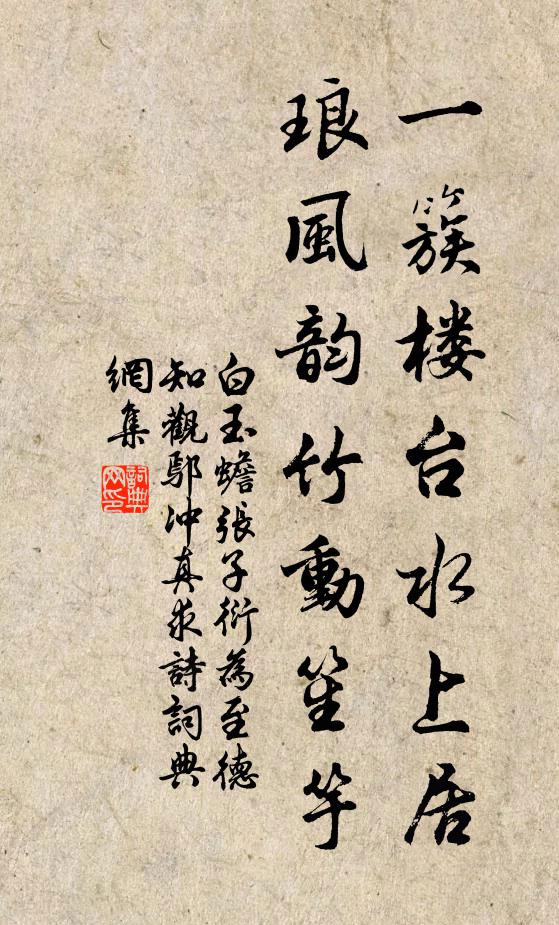 一簇楼台水上居
琅風韵竹動笙竽
白玉蟾張子衍為至德
知觀鄢冲真求詩詞典
網集
詞典
网印